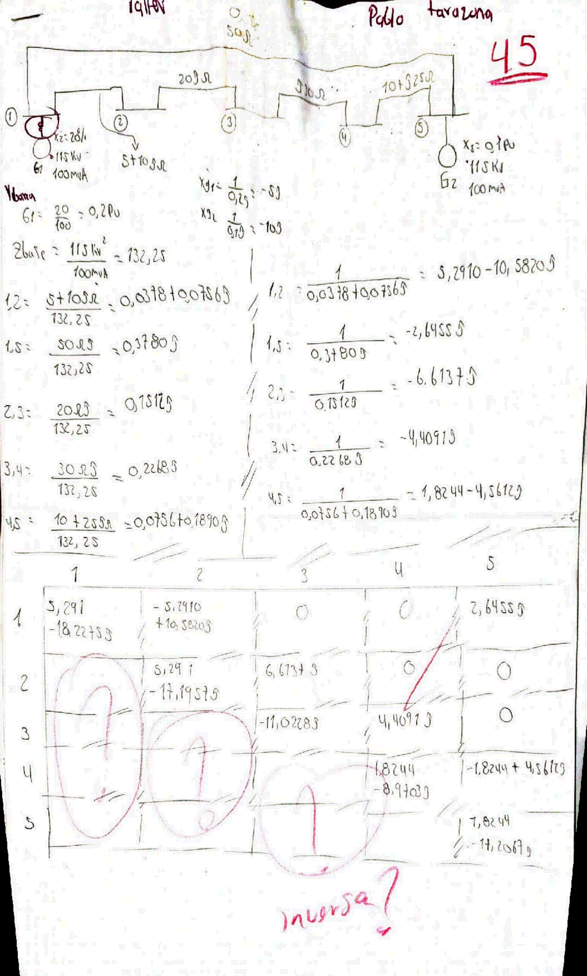 Taller
Pablo tarazona
45
50Ω
20jΩ
30jΩ
10+j25Ω
①
②
③
④
⑤
5+10jΩ
X2=20%
115 KV
100MVA
G1
X5=0,1Pu
115KV
100MVA
G2
Ybarra
G1= 20/100 = 0,2Pu
Xg1= 1/0,2j = -5j
Xg2 1/0,1j = -10j
Zbase = 115Kv²/100MVA = 132,25
1,2= 5+10jΩ/132,25 = 0,0378+0,0756j
1,5= 50Ωj/132,25 = 0,3780j
2,3= 20Ωj/132,25 = 0,1512j
3,4= 30Ωj/132,25 = 0,2268j
4,5= 10+25jΩ/132,25 = 0,0756+0,1890j
1,2= 1/0,0378+0,0756j = 5,2910-10,5820j
1,5= 1/0,3780j = -2,6455j
2,3= 1/0,1512j = -6.6137j
3,4= 1/0,2268j = -4,4091j
4,5= 1/0,0756+0,1890j = 1,8244-4,5612j
1 2 3 4 5
1 5,291 -18,2275j -5,2910 +10,5820j 0 0 2,6455j
2 5,291 -17,1957j 6,6137j 0 0
3 -11,0228j 4,4091j 0
4 1,8244 -8,9703j -1,8244+4,5612j
5 1,8244 -17,2067j
? ? ?
inversa?